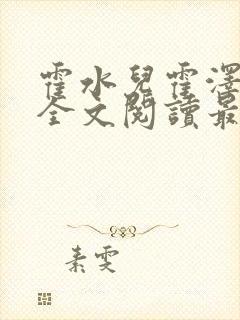 霍水兒霍澤
全文閱讀最
素雯